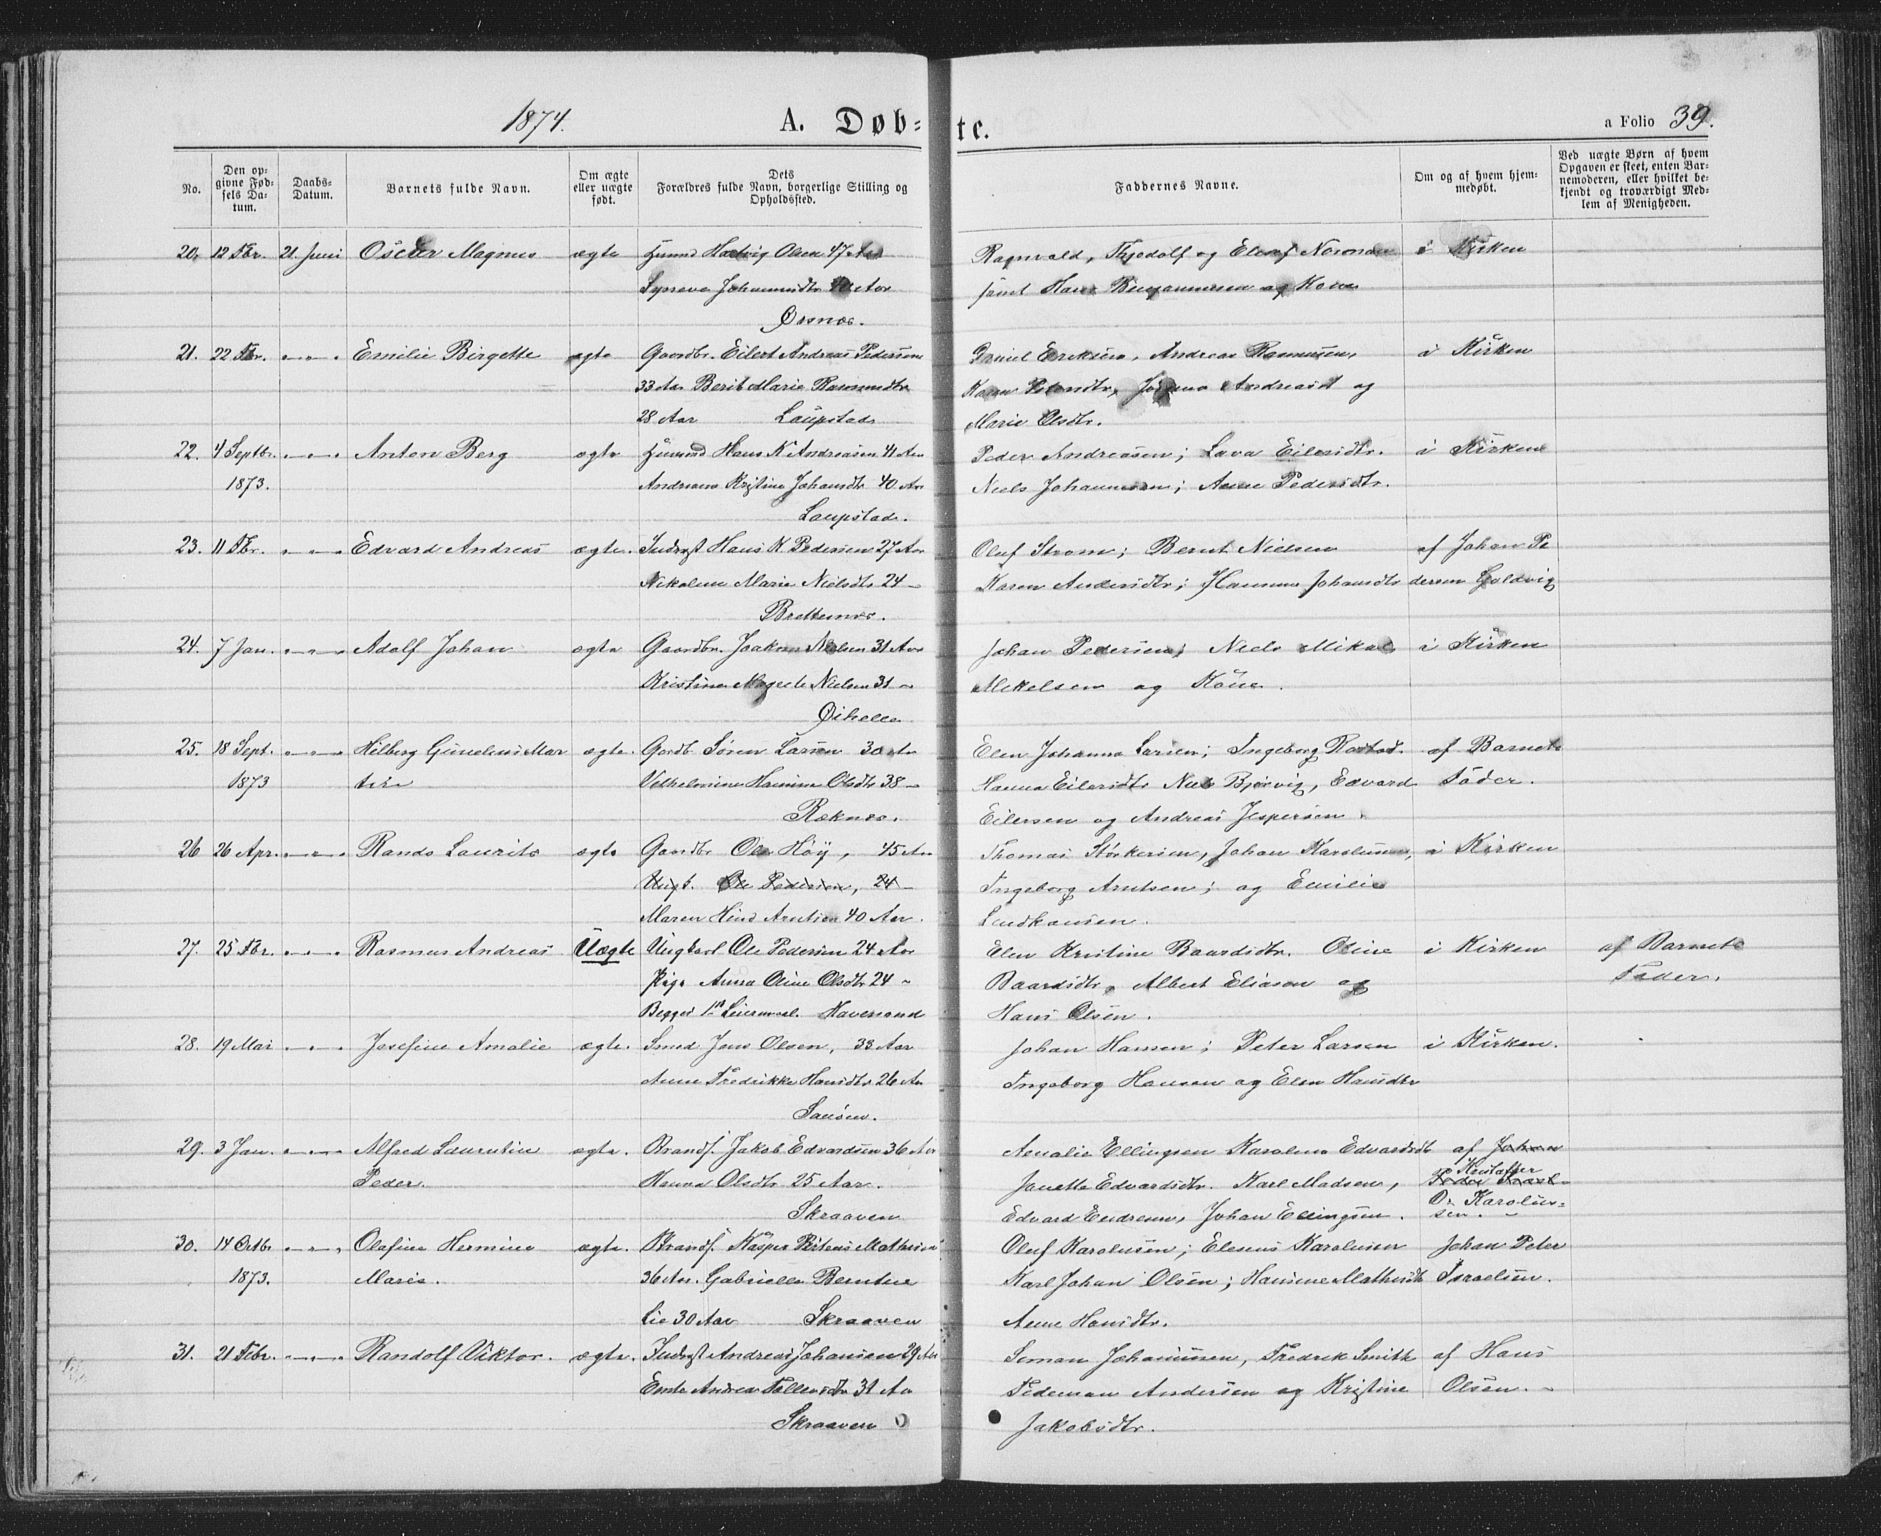 1874. A. Døb=te. a Folio 39.
No. | Den op=givne Fød=sels Da=tum. | Daabs=Datum. | Barnets fulde Navn. | Om ægte eller uægte født. | Dets Forældres fulde Navn, borgerlige Stilling og Opholdssted. | Faddernes Navne. | Om og af hvem hjem=medøbt. | Ved uægte Børn af hvem Opgaven er skeet, enten Bar=nemoderen, eller hvilket be=kjendt og troværdigt Med=lem af Menigheden.
20. 12 Fbr. 21. Juni Oscar Magnus ægte Hartvig Olsen 47 Aar Ragnvald, Thjodolf og Norman i Kirken
Johannesdtr Aar samt Hans Benjaminsen og Kone
Ørsnæs.
21. 22 Fbr. „ „ „ Emilie Birgette ægte Gaardbr. Eilert Andreas Pedersen Daniel Eriksen, Andreas Rasmusen, i Kirken
33 Aar Berit Marie Rasmusdtr Karen og
28 Aar Laupstad Marie Olsdtr.
22. 4 Septbr. „ „ „ Anton Berg ægte Hans K Andreasen 41 Aar Peder Andreasen; Lava i Kirken
1873. Andreana Kristine Johansdtr 40 Aar Niels Johannesen; Anne Pedersdtr.
Laupstad.
23. 11 Fbr. „ „ „ Edvard Andreas ægte. Inderst Hans K. Pedersen 27 Aar Oluf Strøm; Bernt Nielsen af Johan Pe
Nikoline Marie Nielsdtr 24 „ Karen Andersdtr; Hansine Johansdtr dersen Guldvig
Brettesnæs.
24. 7 Jan. „ „ „ Adolf Johan ægte Gaardbr. Joakim Nielsen 31 Aar Johan Pedersen; Niels Mikal i Kirken
Kristine Magrete Nielsen 31 „ Mikelsen og Kone.
Øihelle
25. 18 Sept. „ „ „ Hilberg Mar ægte. Gardb. Søren Larsen 30 Aar Elen Johanna Larsen; Ingeborg af Barnets
1873 tine Vilhelmine Hansine Olsdtr 38 „ Hanna Eilersdtr Niels Bjørvig, Edvard Fader.
Røknæs. Eilersen og Andreas Jespersen.
26 26 Apr. „ „ „ Rando Laurits ægte Gaardbr Ole Høy, 45 Aar Thomas Størkersen, Johan Karolusen, i Kirken
Ungk. Ole Pedersen, 24 „ Ingeborg Arntsen; og Emilie
Maren Arntsen 40 Aar.
27. 25 Fbr. „ „ „ Rasmus Andreas Uægte Ungkarl Ole Pedersen 24 Aar Elen Kristine Baardsdtr. Oline i Kirken af Barnets
Pige Anna Oline Olsdtr 24 „ Baardsdtr, Albert Eliasen og Fader.
Begges 1ste Leiermaal. Haversand Hans Olsen.
28. 19 Mai „ „ „ Josefine Amalie ægte. Smed Jens Olsen, 33 Aar Johan Hansen; Peter Larsen i Kirken.
Anne Fredrikke Hansdtr 26 Aar Ingeborg Hansen og Elen Hansdtr
29. 3 Jan. „ „ „ Alfred Laurentin ægte. Strands. Jakob Edvardsen 36 Aar Amalie Ellingsen Karoline Edvardsdtr af Johan
Peder. Hanna Olsdtr 25 Aar. Janette Edvardsdtr. Karl Madsen, Kristoffer
Skraaven Edvard Endresen, Johan Ellingsen. O. Karolus=
sen.
30. 14 Octbr „ „ „ Olafine Hermine ægte. Strands. Kasper Mathisen Oluf Karolusen; Elenus Karolusen Johan Peter
1873. Marie. 36 Aar. Gabrielle Berntine Karl Johan Olsen; Hansine Mathisdtr Israelsen.
Lie 30 Aar Skraaven Anne Hansdtr.
31. 21 Febr. „ „ „ Randolf Viktor. ægte. Inderst Andreas Johansen 29 Aar Johannesen, Fredrik Smith af Hans
Andrea 31 Aar Andersen og Kristine Olsen. „
Skraaven Jakobsdtr.